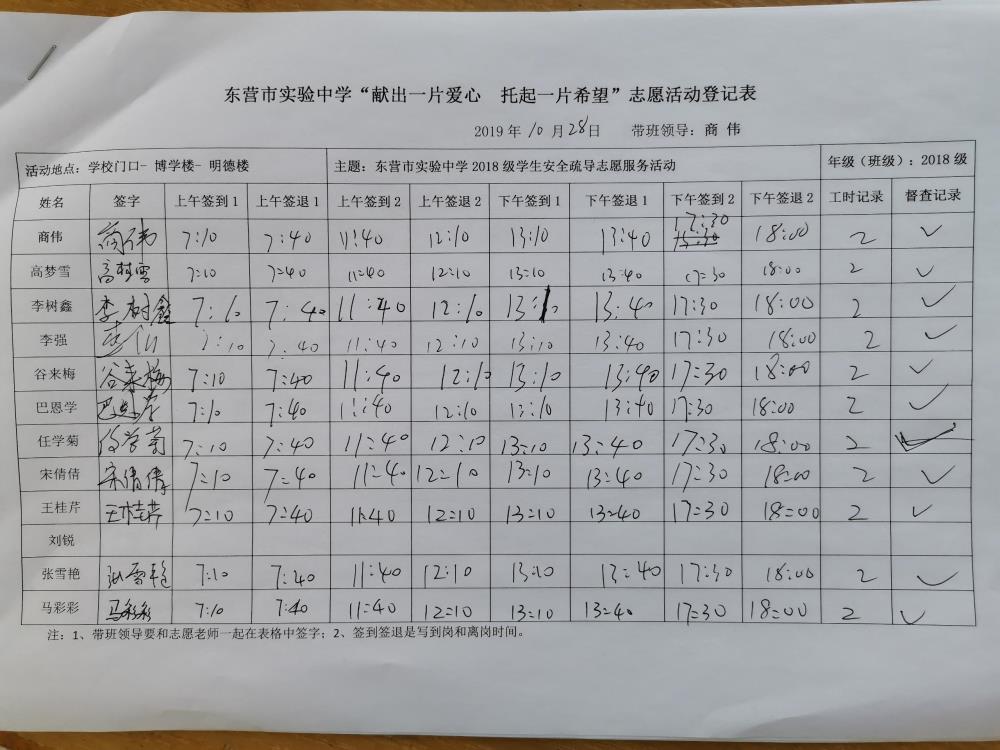 东营市实验中学“献出一片爱心 托起一片希望”志愿活动登记表
2019 年 10 月 28日 带班领导：商 伟
活动地点：学校门口- 博学楼- 明德楼 主题：东营市实验中学 2018 级学生安全疏导志愿服务活动 年级（班级）：2018 级
姓名 签字 上午签到 1 上午签退 1 上午签到 2 上午签退 2 下午签到 1 下午签退 1 下午签到 2 下午签退 2 工时记录 督查记录
商伟 商伟 7:10 7:40 11:40 12:10 13:10 13:40 17:30 18:00 2 ✓
高梦雪 高梦雪 7:10 7:40 11:40 12:10 13:10 13:40 17:30 18:00 2 ✓
李树鑫 李树鑫 7:10 7:40 11:40 12:10 13:10 13:40 17:30 18:00 2 ✓
李强 7:10 7:40 11:40 12:10 13:10 13:40 17:30 18:00 2 ✓
谷来梅 谷来梅 7:10 7:40 11:40 12:10 13:10 13:40 17:30 18:00 2 ✓
巴恩学 巴恩学 7:10 7:40 11:40 12:10 13:10 13:40 17:30 18:00 2 ✓
任学菊 任学菊 7:10 7:40 11:40 12:10 13:10 13:40 17:30 18:00 2 ✓
宋倩倩 宋倩倩 7:10 7:40 11:40 12:10 13:10 13:40 17:30 18:00 2 ✓
王桂芹 王桂芹 7:10 7:40 11:40 12:10 13:10 13:40 17:30 18:00 2 ✓
刘锐
张雪艳 张雪艳 7:10 7:40 11:40 12:10 13:10 13:40 17:30 18:00 2 ✓
马彩彩 马彩彩 7:10 7:40 11:40 12:10 13:10 13:40 17:30 18:00 2 ✓
注：1、带班领导要和志愿老师一起在表格中签字；2、签到签退是写到岗和离岗时间。